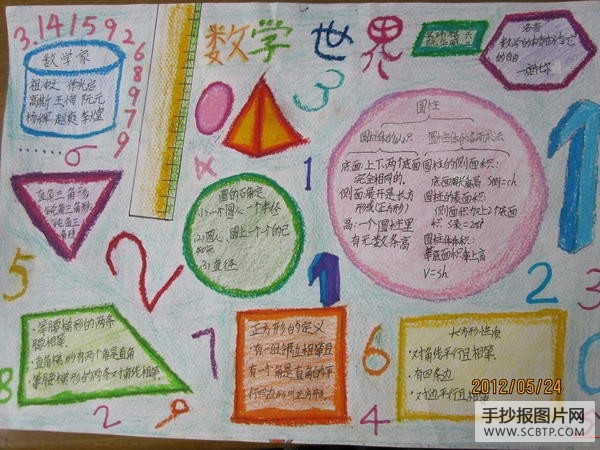 3.1415926
8
9
7
9
数学世界
数学家
祖冲之 徐光启
高斯 王恂 阮元
杨辉 赵爽 李煌
……
名言
数学的本质在于它
的自由
—康托尔
直角三角形
钝角三角形
圆的确定
(1)一个圆心一个半径
(3)直径
圆柱
圆柱体的认识
底面:上下两个底面
完全相同的。
侧面展开是长方
形或(正方形)
高:一个圆柱里
有无数条高
圆柱的侧面积:
底面周长乘高 S侧=ch
圆柱的表面积:
侧面积加上2个底面
积。
圆柱体体积:
等底面积乘上高
V=sh
·等腰梯形的两条
腰相等.
·直角梯形有两个角是直角
·等腰梯形的两条对角线相等.
正方形的定义
·有一组邻边相等且
有一个角是直角的平
行四边形叫正方形.
长方形性质
·对角线平行且相等.
·有四条边
·对边平行且相等
3
1
1
2
3
5
2
1
7
6
8
2
9
4
0
2012/05/24
手抄报图片网
WWW.SCBTP.COM